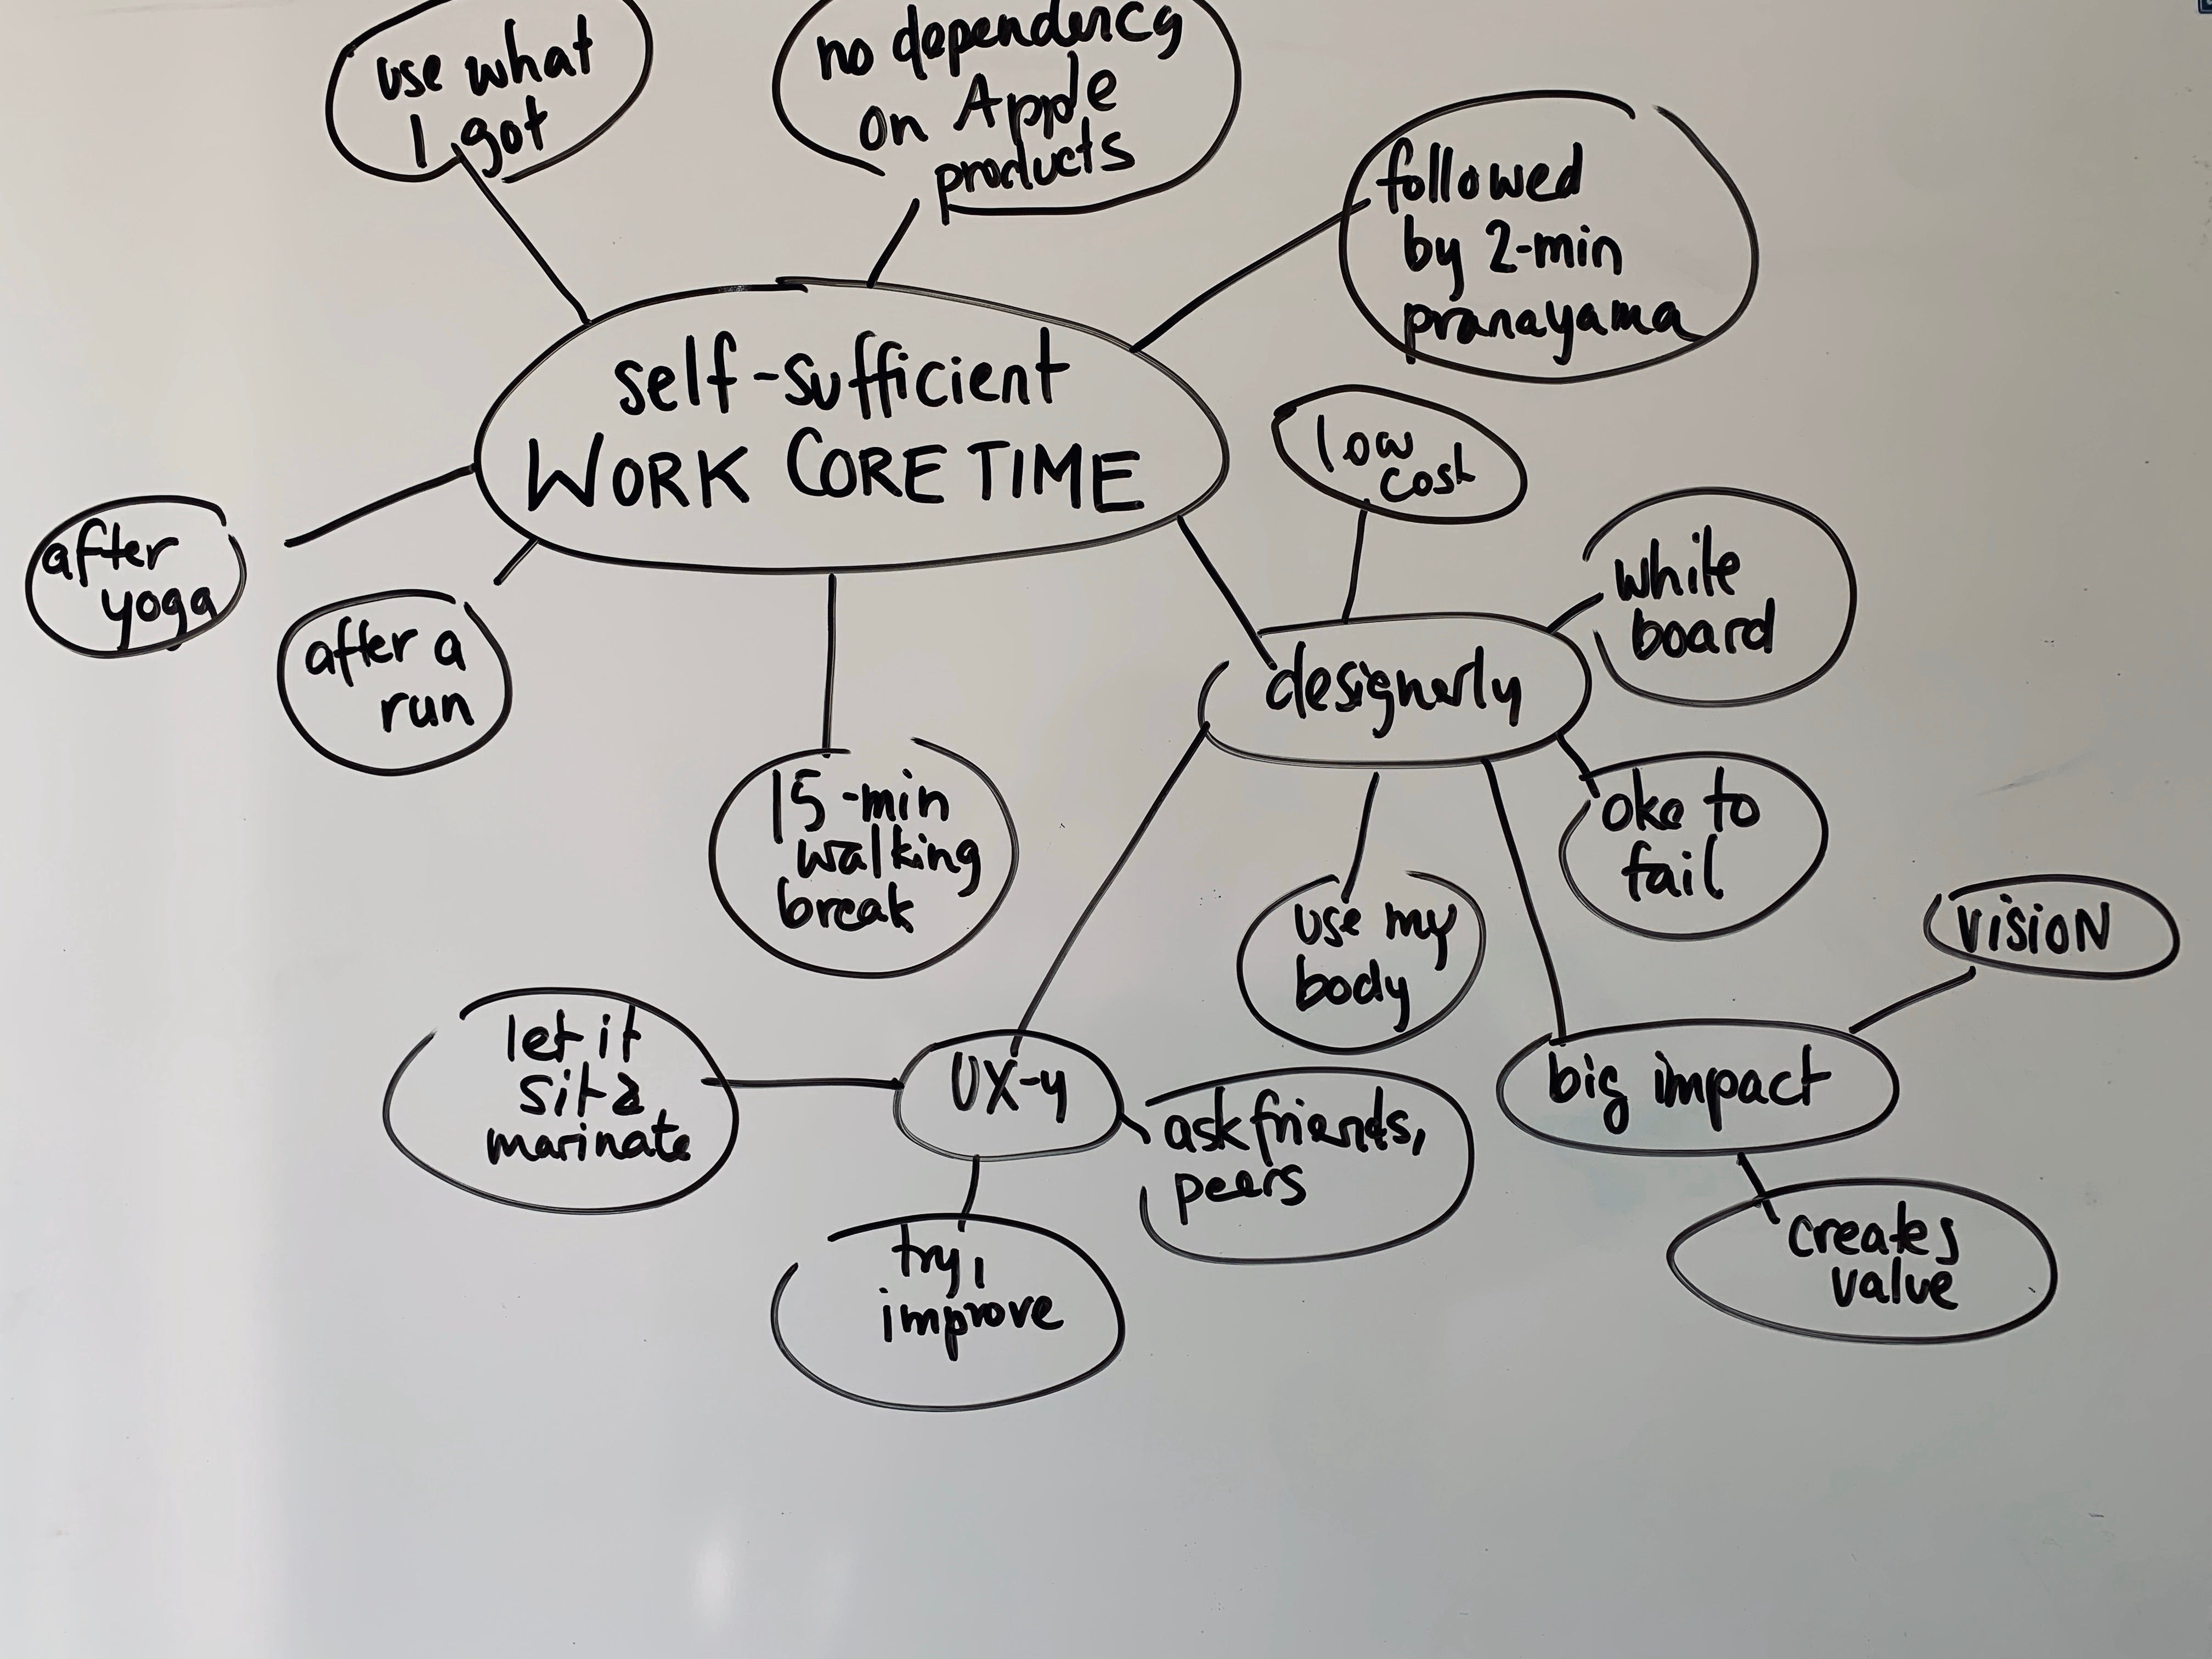 use what
I got
no dependency
on Apple
products
followed
by 2-min
pranayama
self-sufficient
WORK CORE TIME
low
cost
after
yoga
white
board
after a
run
designerly
15-min
walking
break
oke to
fail
use my
body
VISION
let it
sit &
marinate
UX-y
ask friends,
peers
big impact
try,
improve
creates
value